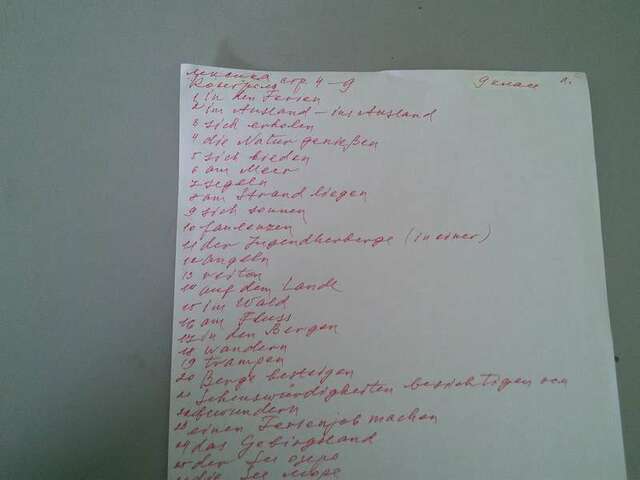 лексика
Контроль стр 4-9 9 класс
1 in den Ferien
2 im Ausland - ins Ausland
3 sich erholen
4 die Natur genießen
5 sich bieden
6 am Meer
7 segeln
8 am Strand liegen
9 sich sonnen
10 faulenzen
11 der Jugendherberge (in einer)
12 angeln
13 reiten
14 auf dem Lande
15 im Wald
16 am Fluss
17 in den Bergen
18 wandern
19 trampen
20 Berge besteigen
21 Sehenswürdigkeiten besichtigen
22 bewundern
23 einen Ferienjob machen
24 das Gebirgsland
25 der See озеро
die See море